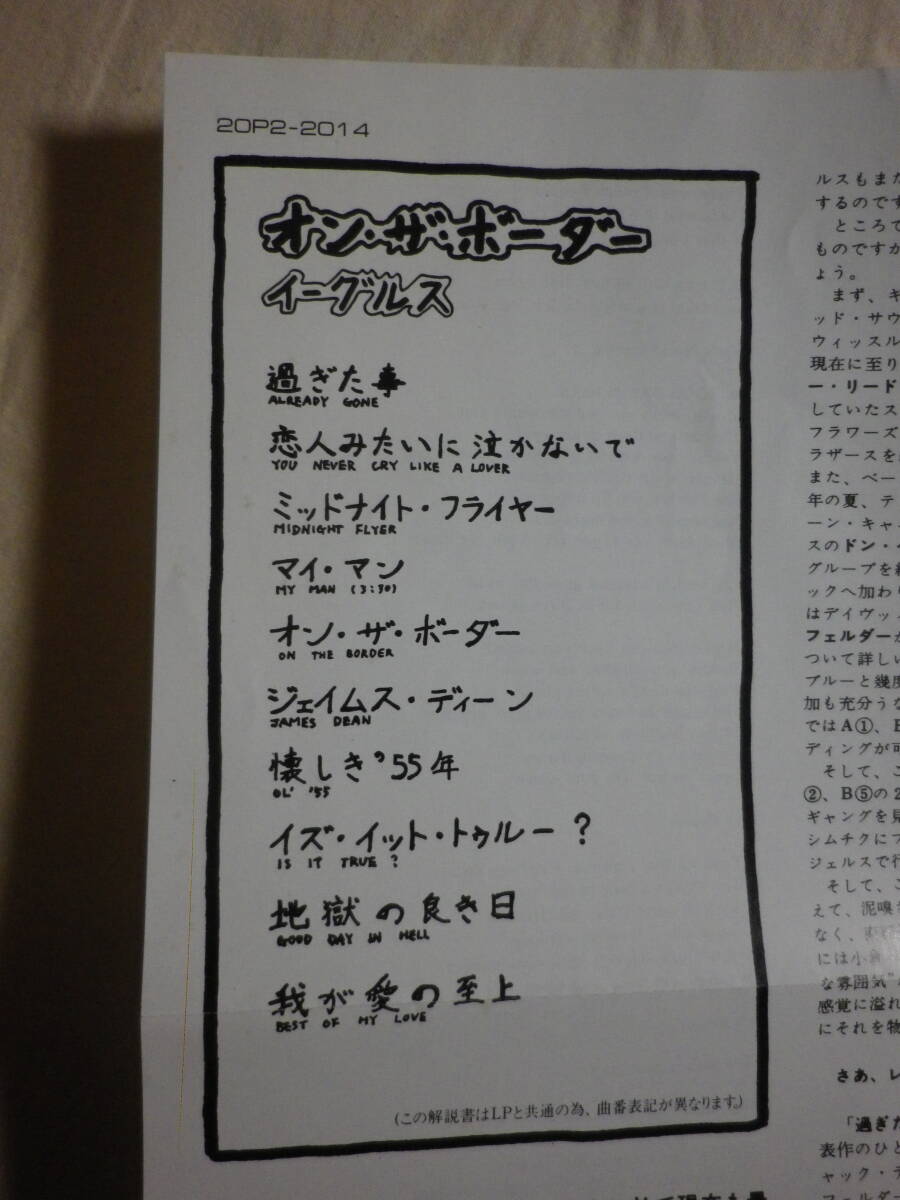 20P2-2014
オン・ザ・ボーダー
イーグルス
過ぎた事
ALREADY GONE
恋人みたいに泣かないで
YOU NEVER CRY LIKE A LOVER
ミッドナイト・フライヤー
MIDNIGHT FLYER
マイ・マン
MY MAN (3:30)
オン・ザ・ボーダー
ON THE BORDER
ジェイムス・ディーン
JAMES DEAN
懐しき'55年
OL' '55
イズ・イット・トゥルー?
IS IT TRUE ?
地獄の良き日
GOOD DAY IN HELL
我が愛の至上
BEST OF MY LOVE
(この解説書はLPと共通の為、曲番表記が異なります。)
ルスもまた
するのです
ところで
ものですか
ょう。
まず、キ
ッド・サウ
ウィッスル
現在に至り
ー・リード
していたス
フラワーズ
ラザースを
また、ベー
年の夏、テ
ーン・キャ
スのドン・
グループを
ックへ加わり
はデイヴッ
フェルダーが
ついて詳しい
ブルーと幾度
加も充分うな
ではA①、B
ディングが可
そして、こ
②、B⑤の2
ギャングを見
シムチクにプ
ジェルスで行
そして、こ
えて、泥嗅
なく、
には小
な雰囲気"
感覚に溢れ
にそれを物
さあ、レ
「過ぎた
表作のひと
ャック・テ